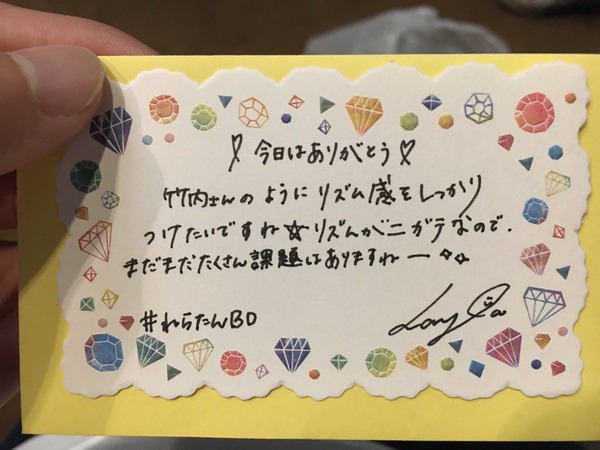 ♡ 今日はありがとう ♡
竹内さんのようにリズム感をしっかり
つけたいですね☆リズムがニガテなので、
まだまだたくさん課題はありますねー
#れらたんBD